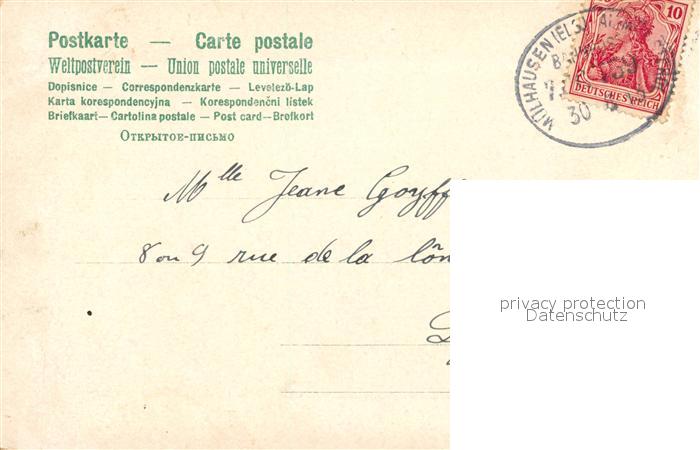 Postkarte — Carte postale
Weltpostverein — Union postale universelle
Dopisnice — Correspondenzkarte — Levelező-Lap
Karta korespondencyjna — Korespondenční lístek
Briefkaart — Cartolina postale — Post card — Brefkort
Открытое-письмо
MÜLHAUSEN (ELS)
10
DEUTSCHES REICH
30
Mlle Jeane
8 ou 9 rue de la
privacy protection
Datenschutz